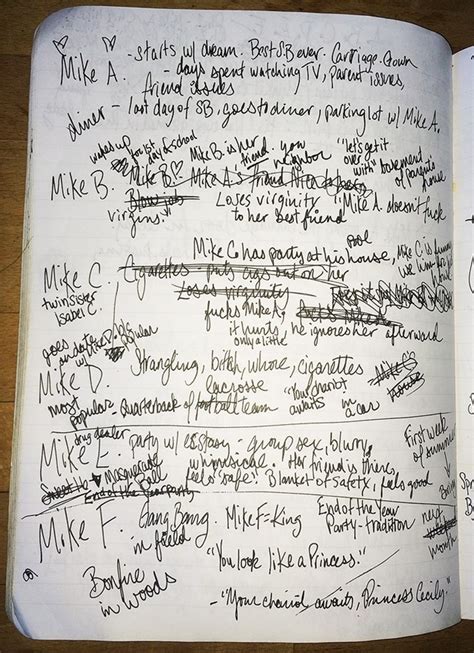 Mike A. - starts w/ dream. Best SB ever. Carriage. Gown
- days spent watching TV, parent issues,
friend issues
diner - last day of SB, goes to diner, parking lot w/ Mike A.
wakes up for 1st day of school
Mike B. is her friend. you neighbor
"let's get it over with" basement of parent's house
Mike B. Mike B. Mike A's friend
Blow job
virgins.
Loses virginity to her best friend
Mike A. doesn't fuck
Mike C. has party at his house, pool
Mike C.
twin sister
Isabel C.
Cigarettes - puts cigs out on her
Loses virginity
fucks Mike A.
it hurts, he ignores her afterward
only a little
goes on date w/
popular
Mike D. Strangling, bitch, whore, cigarettes
most popular - Quarterback of football team
lacrosse
"Your chariot awaits" in a car
Mike C's house
drug dealer
Mike E. party w/ ecstasy - group sex, blurry,
whimsical. Her friend is there,
feels "safe". Blanket of safety, feels good
First week of summer
Masquerade
End of the Year Party
Mike F. Gang Bang. Mike F - King
in field
End of the Year
Party - tradition
next month
"You look like a Princess."
Bonfire
in woods
- "Your chariot awaits, Princess Cecily."